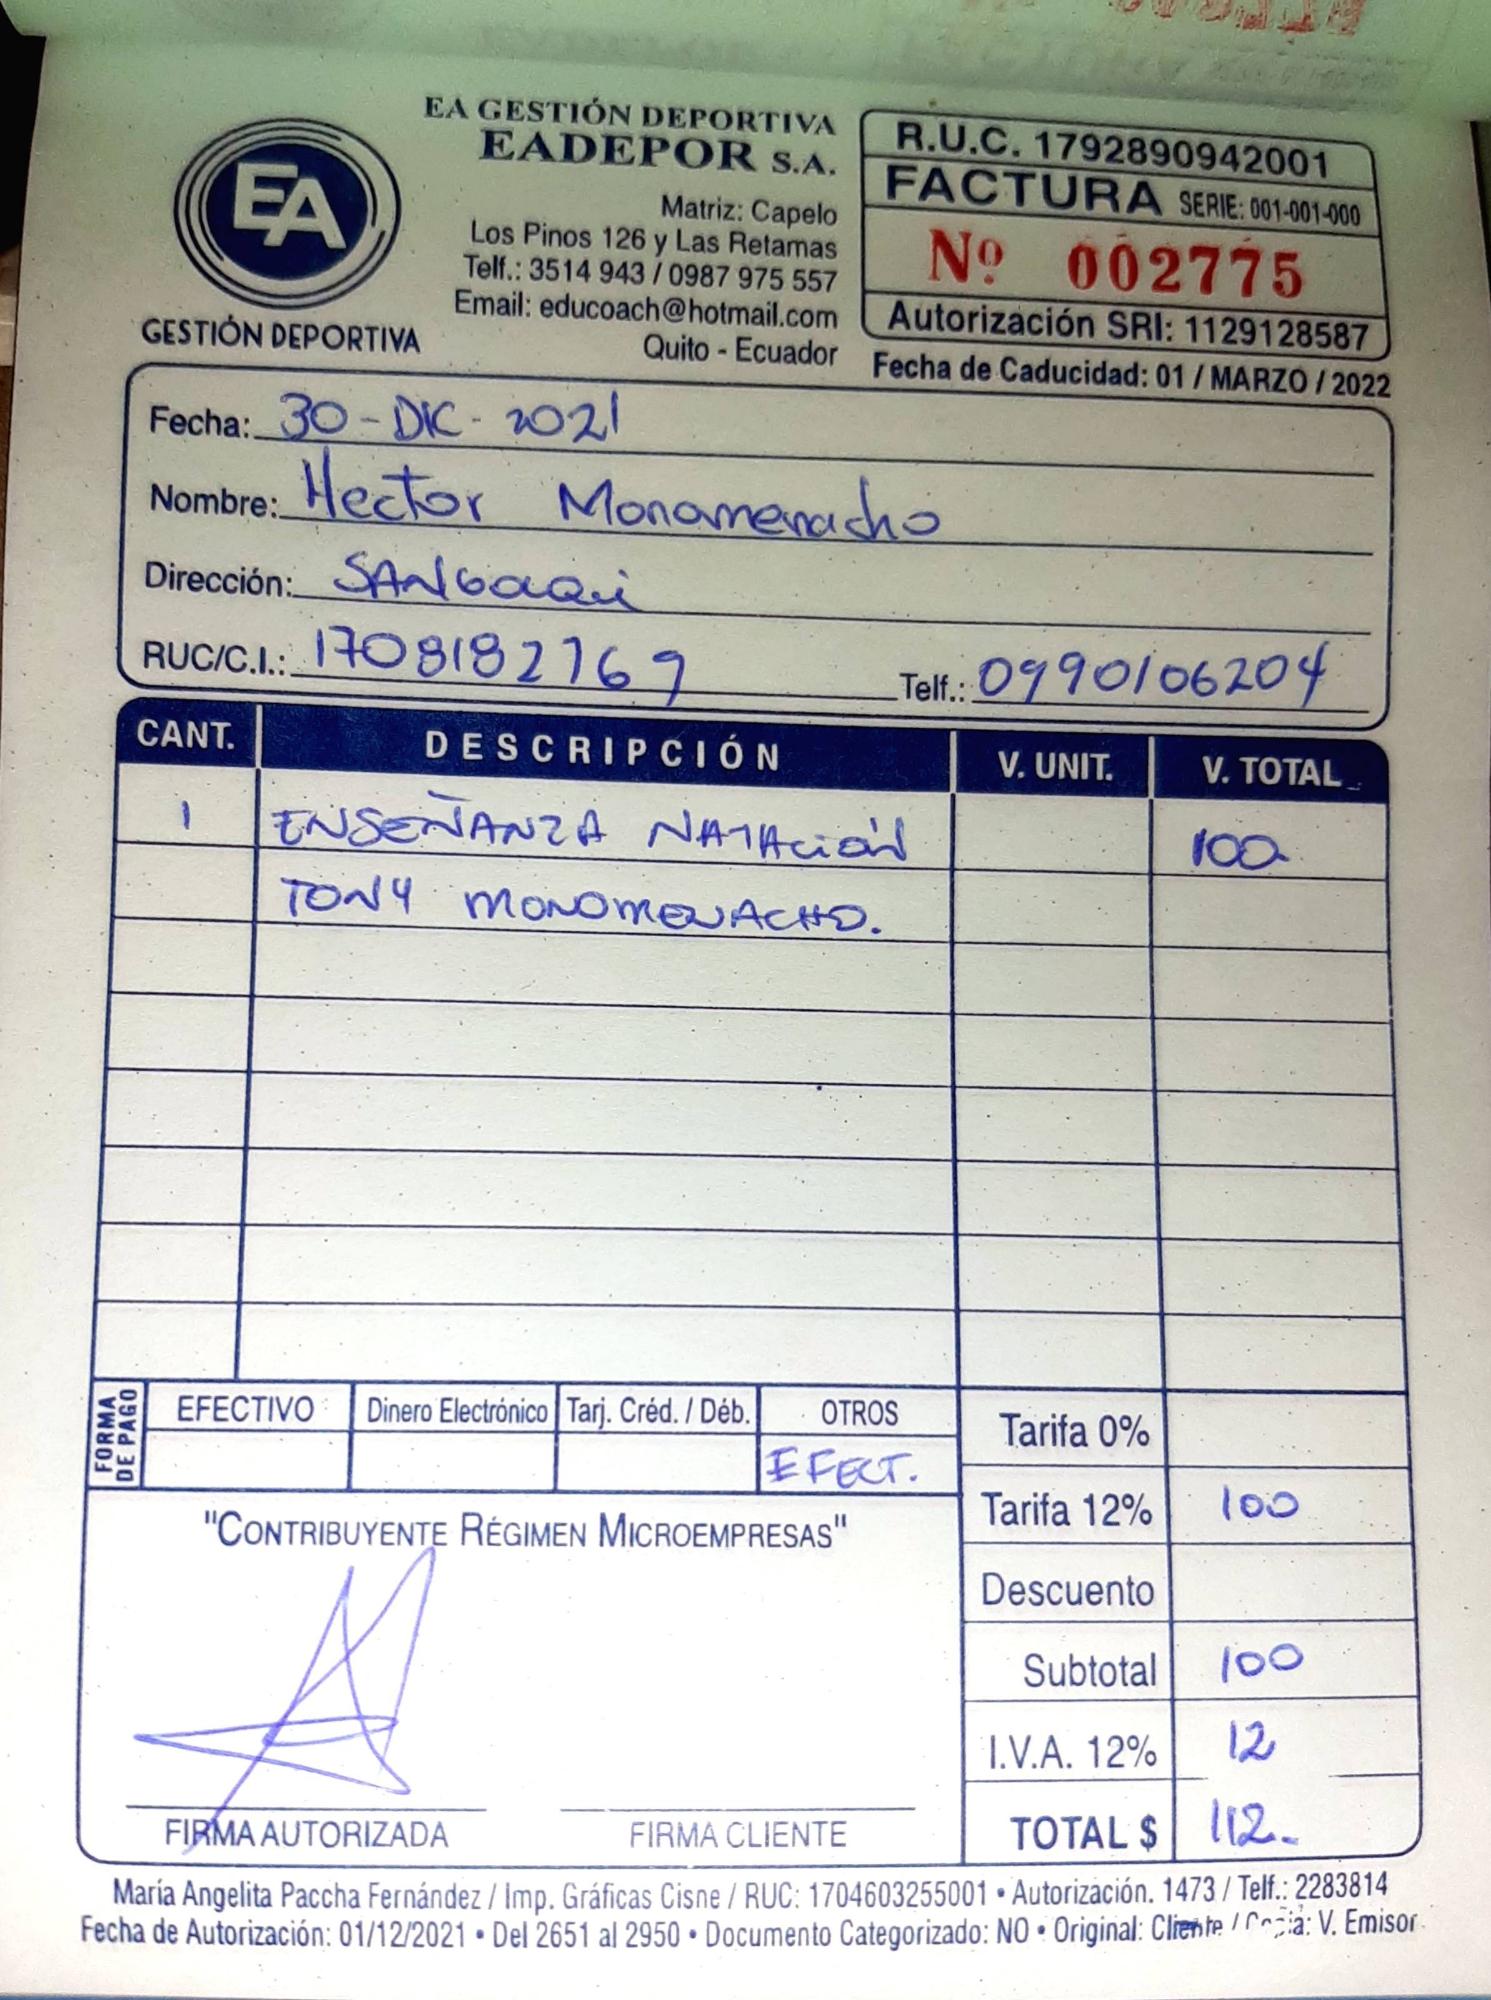 EA GESTIÓN DEPORTIVA
EADEPOR S.A.
EA
GESTIÓN DEPORTIVA
Matriz: Capelo
Los Pinos 126 y Las Retamas
Telf.: 3514 943 / 0987 975 557
Email: educoach@hotmail.com
Quito - Ecuador
R.U.C. 1792890942001
FACTURA SERIE: 001-001-000
Nº 002775
Autorización SRI: 1129128587
Fecha de Caducidad: 01 / MARZO / 2022
Fecha: 30-DIC-2021
Nombre: Hector Monamenacho
Dirección: SANGOLQUI
RUC/C.I.: 1708182769 Telf.: 0990106204
CANT. DESCRIPCIÓN V. UNIT. V. TOTAL
1 ENSEÑANZA NATACIÓN 100
TONY MONOMENACHO.
FORMA DE PAGO
EFECTIVO Dinero Electrónico Tarj. Créd. / Déb. OTROS
EFECT.
Tarifa 0%
Tarifa 12% 100
Descuento
Subtotal 100
I.V.A. 12% 12
TOTAL $ 112.-
"CONTRIBUYENTE RÉGIMEN MICROEMPRESAS"
FIRMA AUTORIZADA FIRMA CLIENTE
María Angelita Paccha Fernández / Imp. Gráficas Cisne / RUC: 1704603255001 • Autorización. 1473 / Telf.: 2283814
Fecha de Autorización: 01/12/2021 • Del 2651 al 2950 • Documento Categorizado: NO • Original: Cliente / Copia: V. Emisor